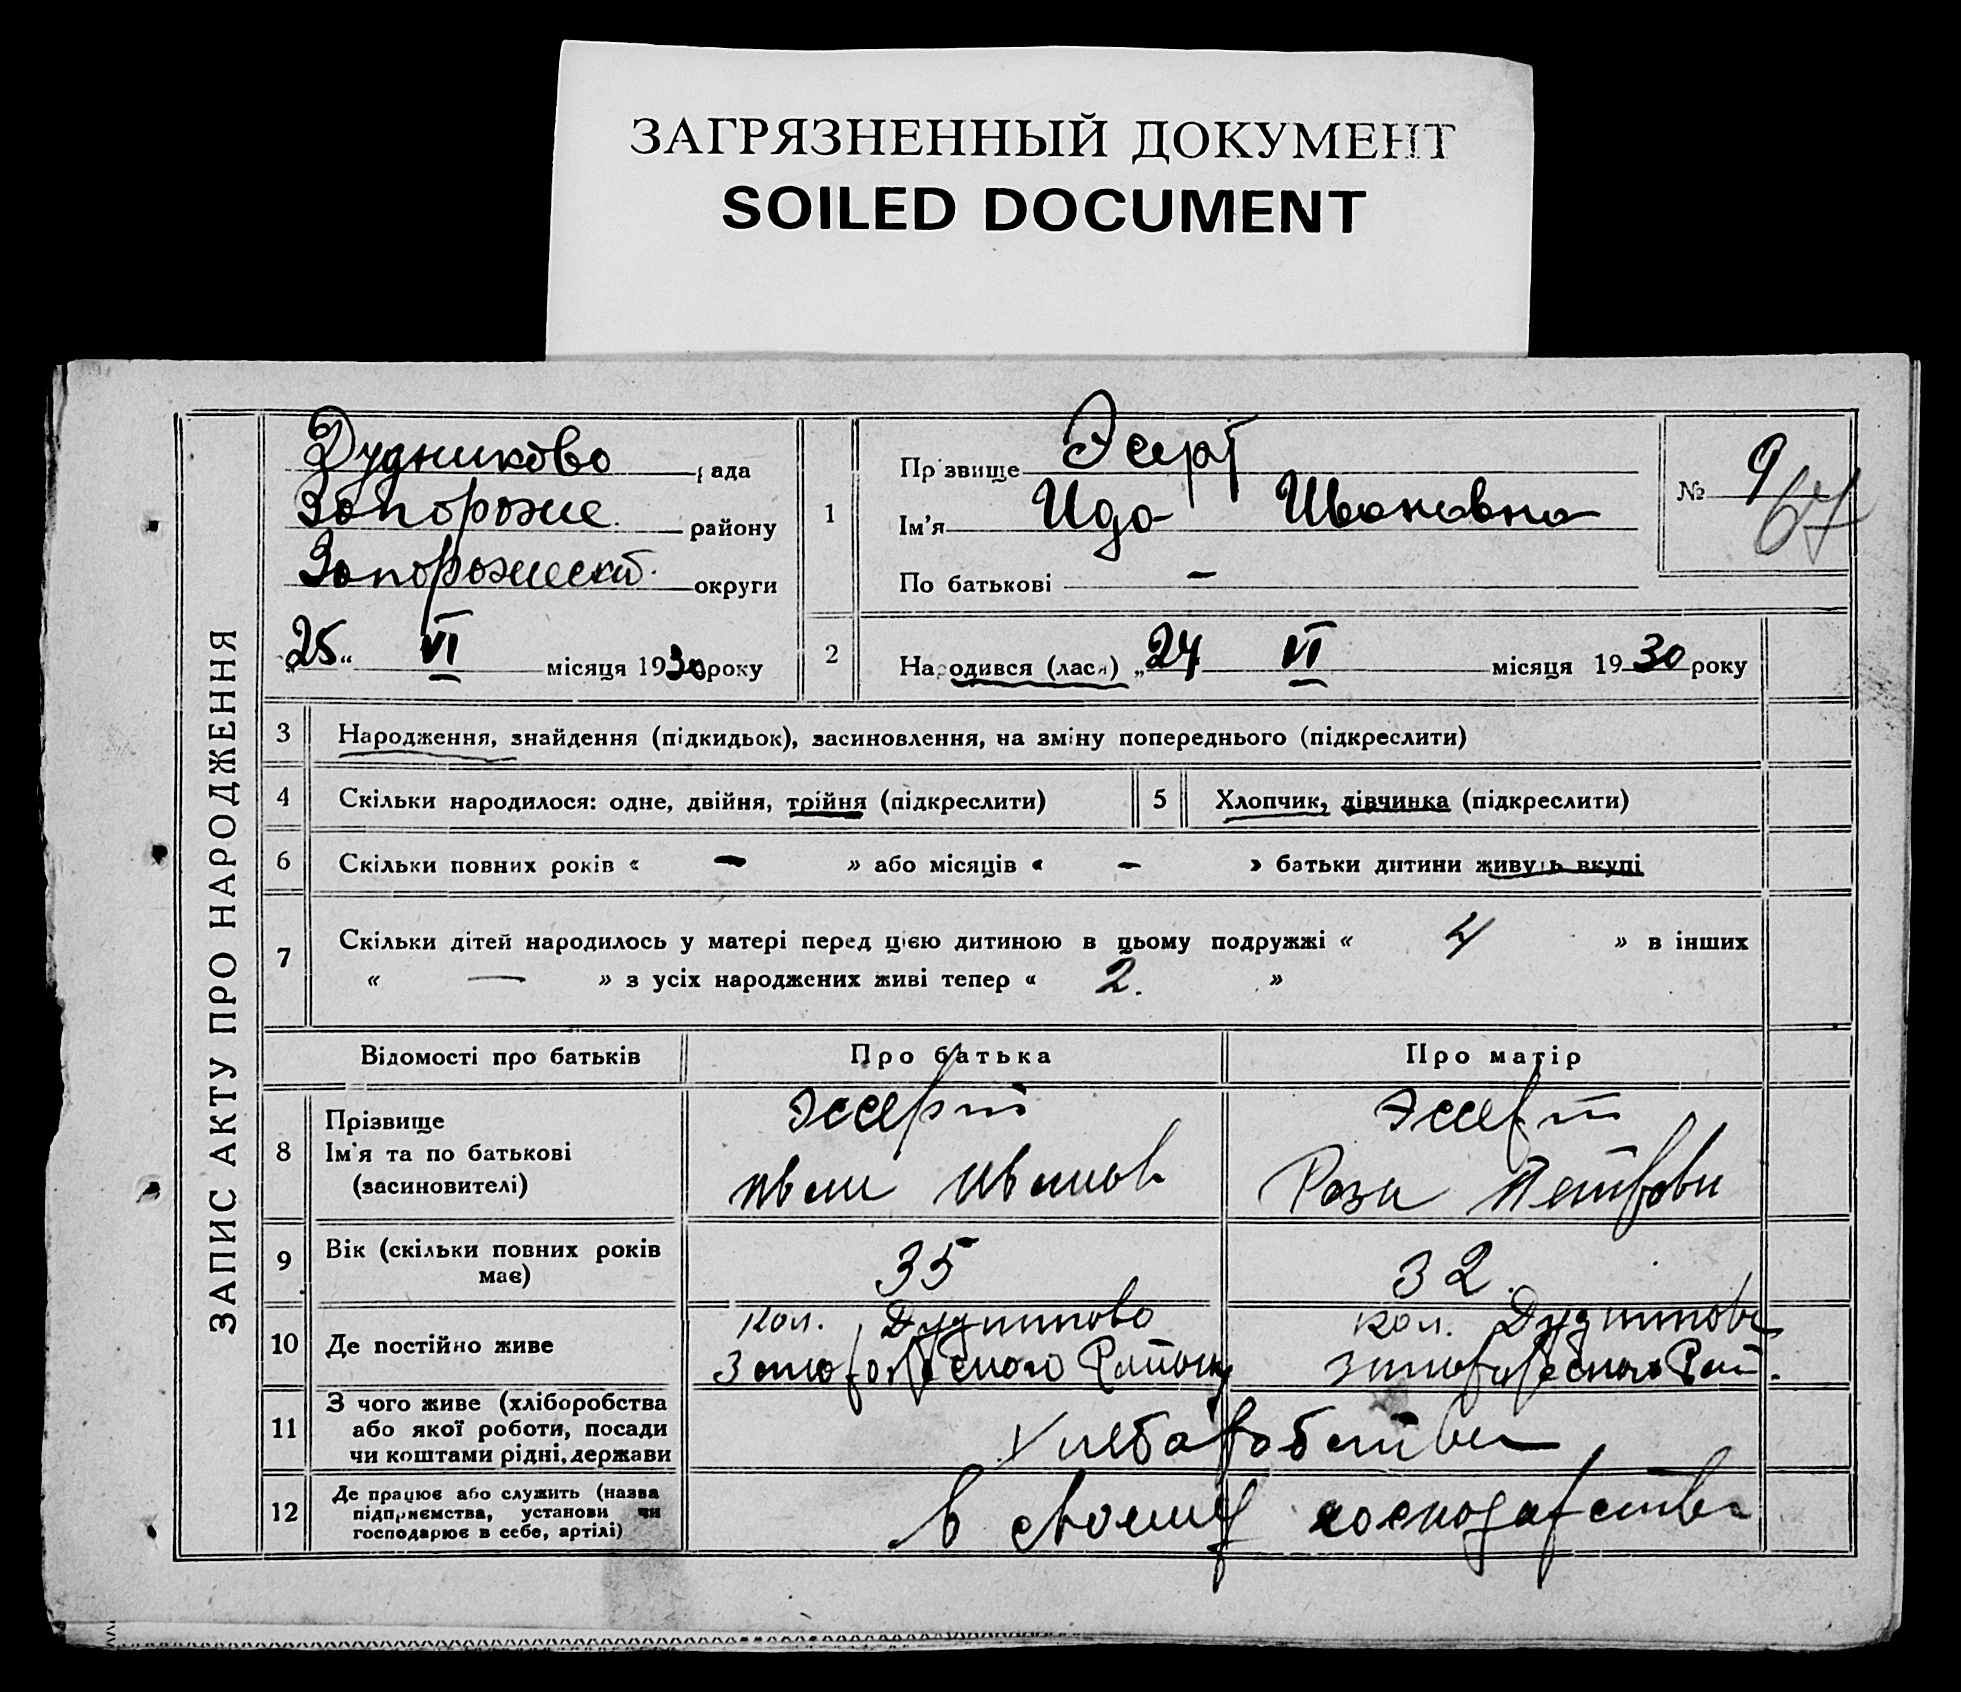 ЗАГРЯЗНЕННЫЙ ДОКУМЕНТ
SOILED DOCUMENT
ЗАПИС АКТУ ПРО НАРОДЖЕННЯ
Дудниково рада
Запороже району
Запорожскт. округи
„25“ VI місяця 1930 року
1
Прізвище Эсерт
Ім'я Ида Ивановна
По батькові –
№ 9
67
2
Народився (лася) „24 VI місяця 1930 року
3 Народження, знайдення (підкидьок), засиновлення, на зміну попереднього (підкреслити)
4 Скільки народилося: одне, двійня, трійня (підкреслити)
5 Хлопчик, дівчинка (підкреслити)
6 Скільки повних років « – » або місяців « – » батьки дитини живуть вкупі
7 Скільки дітей народилось у матері перед цією дитиною в цьому подружжі « 4 » в інших
« — » з усіх народжених живі тепер « 2. »
Відомості про батьків Про батька Про матір
8 Прізвище
Ім'я та по батькові
(засиновителі)
Эссерт
Иван Иванов
Эссерт
Роза Петрови
9 Вік (скільки повних років
має)
35
32.
10 Де постійно живе
кол. Дудников
Запорожского Району
кол. Дудников
Запорожского Рай.
11 З чого живе (хліборобства
або якої роботи, посади
чи коштами рідні, держави
Хлебаробства
12 Де працює або служить (назва
підприємства, установи чи
господарює в себе, артілі)
в своему господарстві